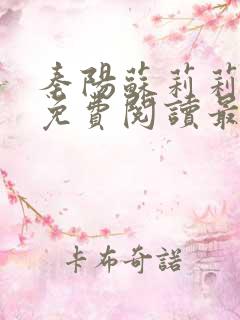 秦陽蘇莉莉
免費閱讀最
卡布奇諾